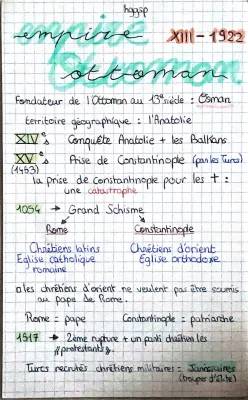 hggsp
empire
ottoman
XIII - 1922
Fondateur de l'Ottoman au 13e siècle : Osman
territoire géographique : l'Anatolie
XIVe s Conquête Anatolie + les Balkans
XVe s Prise de Constantinople (par les Turcs)
(1453)
la prise de constantinople pour les † :
une catastrophe
1054 → Grand Schisme
Rome Constantinople
Chrétiens latins Chrétiens d'orient
Eglise catholique Eglise orthodoxe
romaine
les chrétiens d'orient ne veulent pas être soumis
au pape de Rome.
Rome = pape Constantinople = patriarche
1517 → 2ème rupture + un parti chrétien les
"protestants".
Turcs recrutés chrétiens militaires = Janissaires
(troupes d'élite)